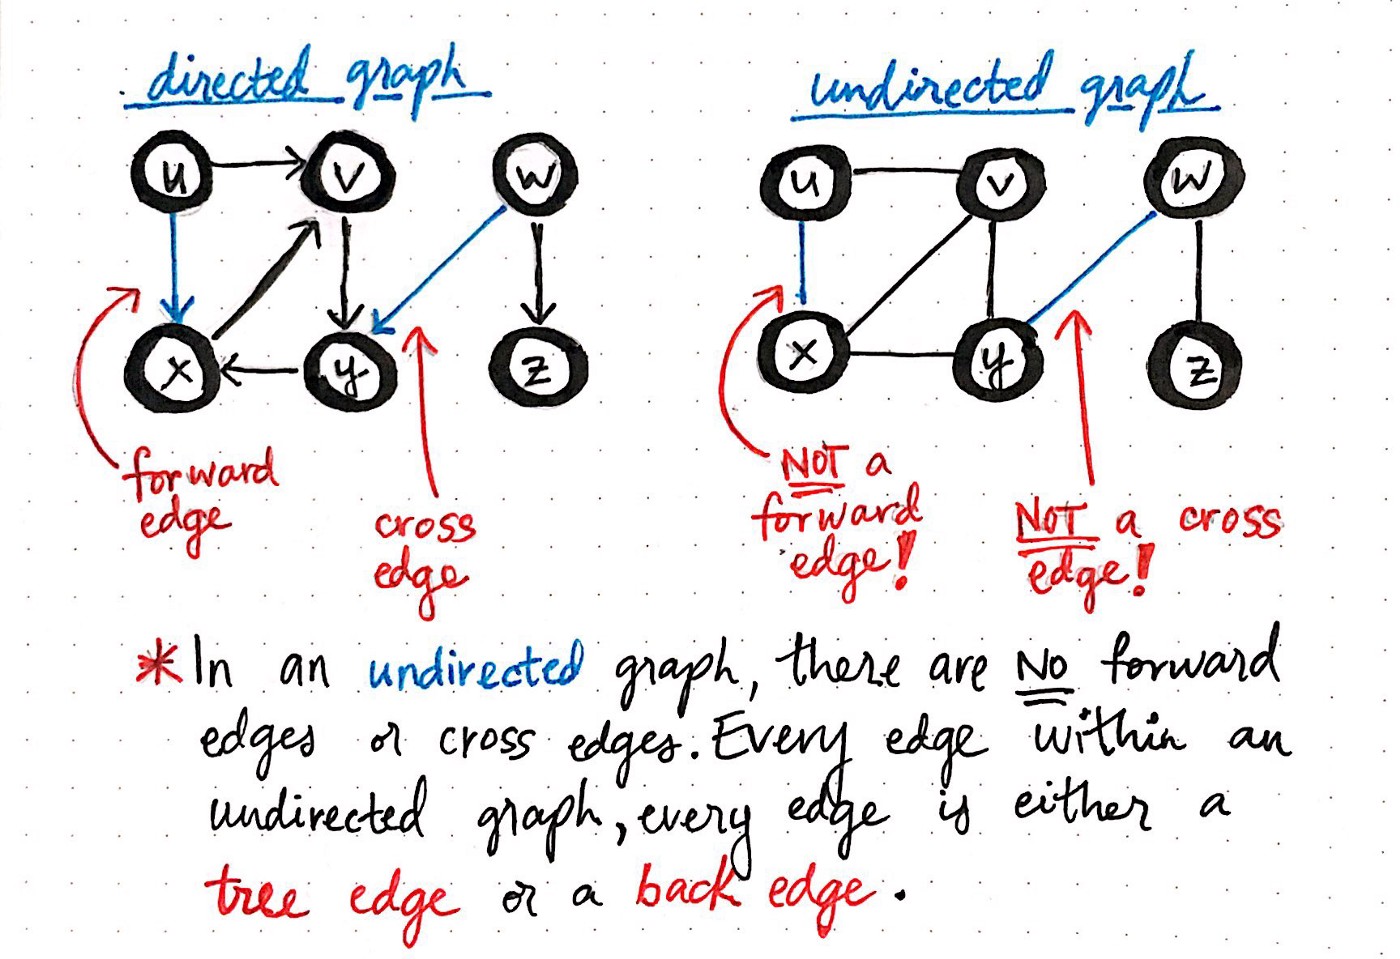 directed graph
undirected graph
u
v
w
x
y
z
forward
edge
cross
edge
u
v
w
x
y
z
NOT a
forward
edge!
NOT a cross
edge!
*In an undirected graph, there are NO forward
edges or cross edges. Every edge within an
undirected graph, every edge is either a
tree edge or a back edge.